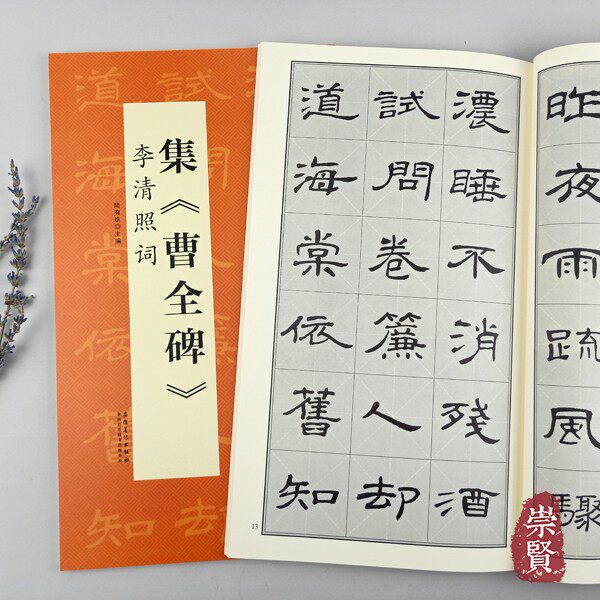 集《曹全碑》
李清照词
陆有珠·主编
安徽美术出版社
道海棠依舊知
試問簾却
昨夜雨疏風驟
濃睡不消殘酒
試問卷簾人却
道海棠依舊知
13
崇賢